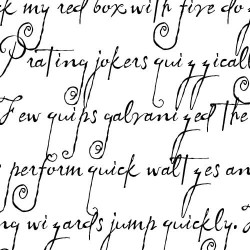 k my red box with five do
Prating jokers quizzicall
Few quips galvanized the
s perform quick waltzes an
ng wizards jump quickly.